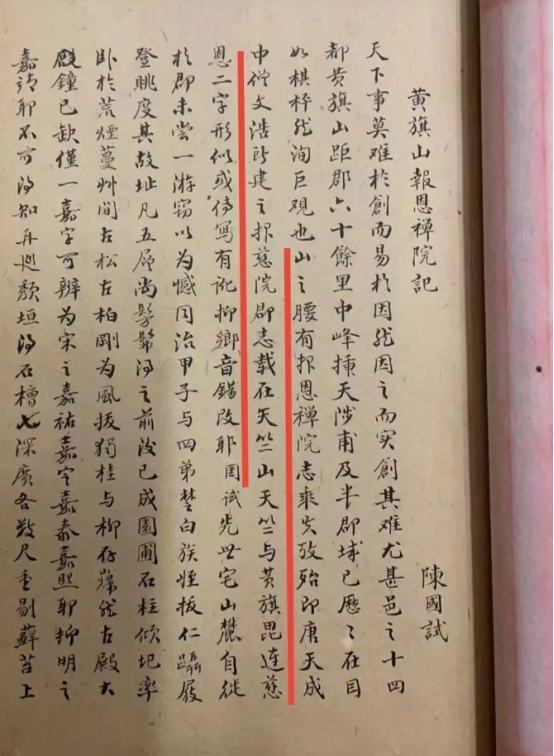 黄旗山報恩禪院記
陳國試
天下事莫難於創而易於因然因之而实創其難尤甚邑之十四
都黄旗山距郡六十餘里中峰插天涉甫及半郡城已歷〻在目
如棋枰然洵巨观也山之腰有报恩禪院志乘失攷殆即唐天成
中僧文浩所建之报慈院郡志載在天竺山天竺与黄旗毘連慈
恩二字形似或傳寫有訛抑鄉音錯改耶国试先世宅山麓自徙
於郡未嘗一游窃以為憾同治甲子与四弟楚白族姪拔仁躡屐
登眺度其故址凡五層尚髣髴得之前後已成園圃石柱傾圯率
卧於荒煙蔓艸間古松古柏剛為風拔獨桂与柳存巋然古殿大
殿鐘已缺僅一嘉字可辨為宋之嘉祐嘉定嘉泰嘉熙耶抑明之
嘉靖耶不可得知再巡頹垣得石槽七深廣各数尺重剔蘚苔上